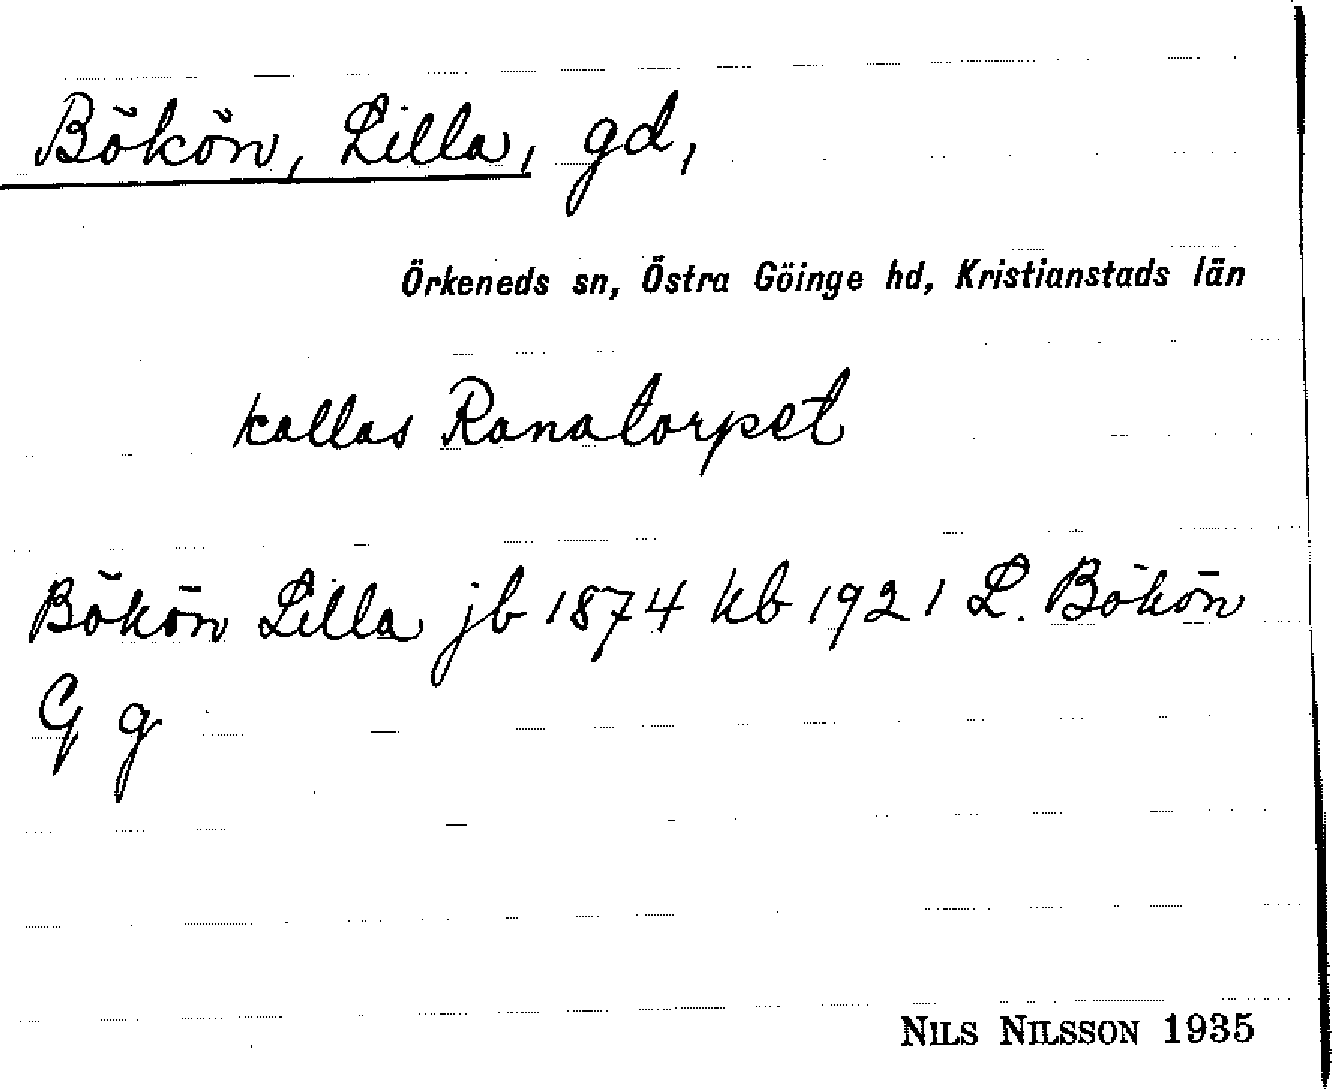 Bökön, Lilla, gd,
Örkeneds sn, Östra Göinge hd, Kristianstads län
kallas Ranatorpet
Bökön Lilla jb 1874 kb 1921 L. Bökön
G g
NILS NILSSON 1935